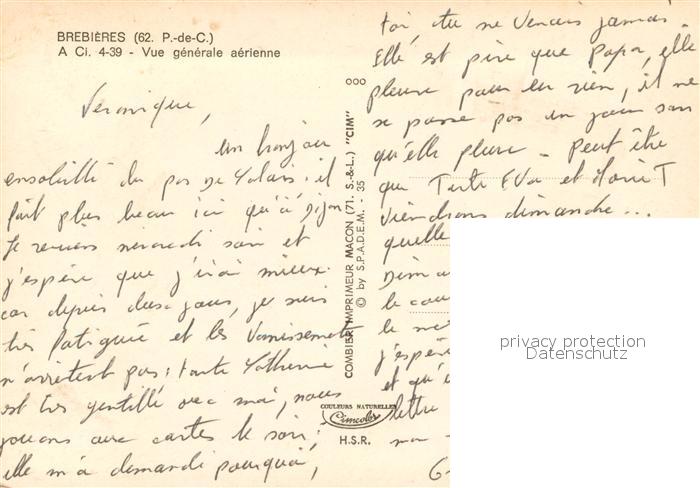 BREBIÈRES (62. P.-de-C.)
A Ci. 4-39 - Vue générale aérienne
Veronique,
Un bonjour
ensoleillé du pas De Calais : il
fait plus beau ici qu'à Dijon
Je reviens mercredi soir et
j'espère que j'irai mieux
car depuis deux jours, je suis
très fatiguée et les Vomissements
n'arrêtent pas : tante Catherine
est très gentille avec moi, nous
jouons aux cartes le soir ;
elle m'a demandé pourquoi,
toi, tu ne Venais jamais.
Elle est pire que Papa, elle
pleure pour un rien, il ne
se passe pas un jour sans
qu'elle pleure - Peut être
que Tante EVa et
Viendrons dimanche...
quelle
Dima
le cou
le me
j'espère
et qu'
lettre
ma
G
COMBIER IMPRIMEUR MACON (71. S.-&-L.) "CIM"
© by S.P.A.D.E.M. - 35
COULEURS NATURELLES
Cimcolor
H.S.R.
privacy protection
Datenschutz